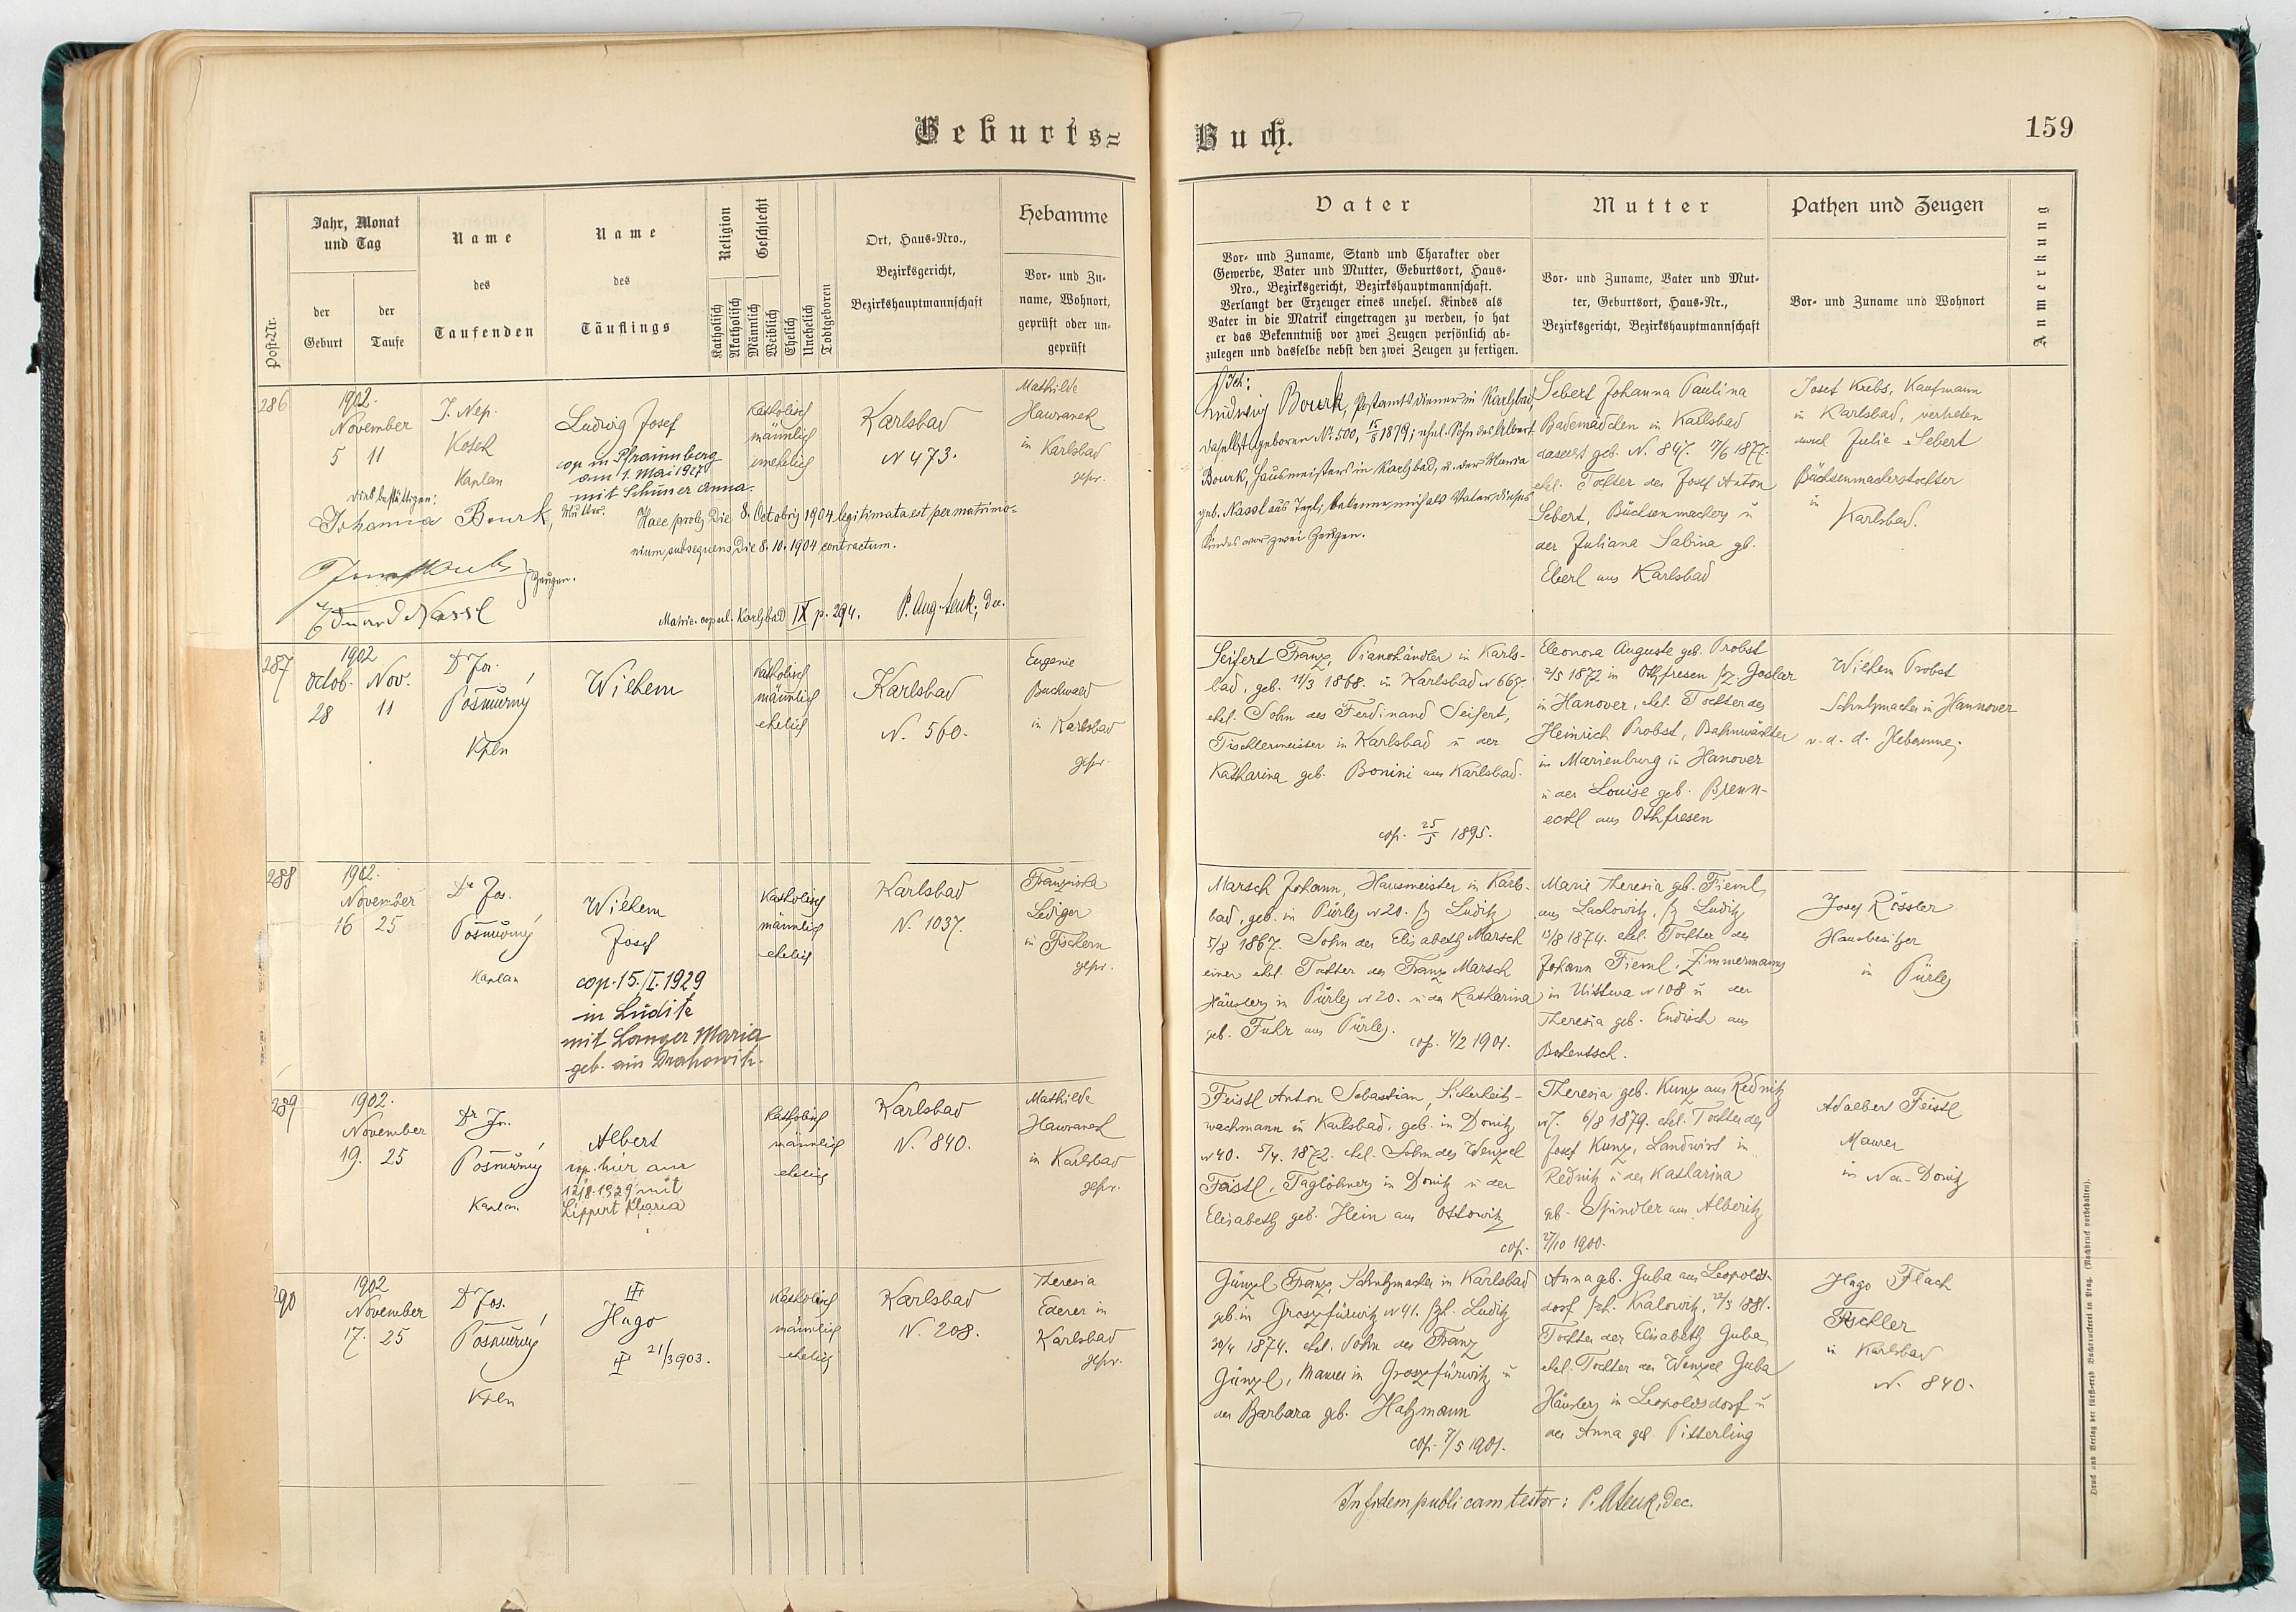 Geburts=
Buch.
159
Post-Nr.
Jahr, Monat
und Tag
der
Geburt
der
Taufe
Name
des
Taufenden
Name
des
Täuflings
Religion
Katholisch
Akatholisch
Geschlecht
Männlich
Weiblich
Ehelich
Unehelich
Todtgeboren
Ort, Haus-Nro.,
Bezirksgericht,
Bezirkshauptmannschaft
Hebamme
Vor- und Zu-
name, Wohnort,
geprüft oder un-
geprüft
Vater
Vor- und Zuname, Stand und Charakter oder
Gewerbe, Vater und Mutter, Geburtsort, Haus-
Nro., Bezirksgericht, Bezirkshauptmannschaft.
Verlangt der Erzeuger eines unehel. Kindes als
Vater in die Matrik eingetragen zu werden, so hat
er das Bekenntniß vor zwei Zeugen persönlich ab-
zulegen und dasselbe nebst den zwei Zeugen zu fertigen.
Mutter
Vor- und Zuname, Vater und Mut-
ter, Geburtsort, Haus-Nr.,
Bezirksgericht, Bezirkshauptmannschaft
Pathen und Zeugen
Vor- und Zuname und Wohnort
Anmerkung
286
1902.
November
5 11
J. Nep.
Kosek
Kaplan
Ludwig Josef
cop in Pfraumberg
am 1. Mai 1927
mit Schuner Anna.
Katholisch
männlich
unehelich
Karlsbad
N 473.
Mathilde
Hawranek
in Karlsbad
gepr.
dies bestättigen:
Johanna Bourk, Mutter.
Haec proles die 8. Octobris 1904 legitimata est per matrimo-
nium subsequens die 8.10.1904 contractum.
Josef Krebs
Zeugen.
Eduard Nassl
Matric. copul. Karlsbad IX p. 294.
Ich:
Ludwig Bourk, Postamtsdiener in Karlsbad,
daselbst geboren No 500, 15/8 1879; ehel. Sohn des Albert
Bourk, Hausmeisters in Karlsbad, u. der Maria
geb. Nassl aus Tepl, bekenne mich als Vater dieses
Kindes vor zwei Zeugen.
Sebert Johanna Paulina
Bademädchen in Karlsbad
daselbst geb. N. 847. 17/6 1877.
ehel. Tochter des Josef Anton
Sebert, Büchsenmachers u
der Juliana Sabina gb.
Eberl aus Karlsbad
Josef Krebs, Kaufmann
in Karlsbad, vertreten
durch Julie Sebert
Büchsenmacherstochter
in
Karlsbad.
287
1902
Octob. Nov.
28 11
Dr Jos.
Pošmůrný
Kpln
Wilhem
Katholisch
männlich
ehelich
Karlsbad
N. 560.
Eugenie
Buchwald
in Karlsbad
gepr.
Seifert Franz, Pianohändler in Karls-
bad, geb. 11/3 1868. in Karlsbad N 667.
ehel. Sohn des Ferdinand Seifert,
Tischlermeister in Karlsbad u der
Katharina geb. Bonini aus Karlsbad.
cop. 25/5 1895.
Eleonora Auguste geb. Probst
2/5 1872 in Othfresen Bz. Goslar
in Hanover, ehel. Tochter des
Heinrich Probst, Bahnwächter
in Marienburg in Hanover
u der Louise geb. Brenn-
eckl aus Othfresen
Wilhem Probst
Schuhmacher in Hannover
v. d. d. Hebamme.
288
1902.
November
16 25
Dr Jos.
Pošmůrný
Kaplan
Wilhem
Josef
cop. 15./I. 1929
in Luditz
mit Langer Maria
geb. aus Drahowitz.
Katholisch
männlich
ehelich
Karlsbad
N. 1037.
Franziska
Lediger
in Fischern
gepr.
Marsch Johann, Hausmeister in Karls-
bad, geb. in Pürles N 20. Bz Luditz
5/8 1867. Sohn der Elisabeth Marsch
einer ehel. Tochter des Franz Marsch
Häuslers in Pürles N 20. u der Katharina
geb. Fuhr aus Pürles.
cop. 4/2 1901.
Marie Theresia geb. Tieml
aus Lachowitz, Bz Luditz
15/8 1874. ehel. Tochter des
Johann Tieml, Zimmermanns
in Uittwa N 108 u der
Theresia geb. Endisch aus
Josef Rössler
Hausbesitzer
in Pürles
289
1902.
November
19. 25
Dr Jos.
Pošmůrný
Kaplan
Albert
cop. hier am
12/8. 1929 mit
Lippert Maria
Katholisch
männlich
ehelich
Karlsbad
N. 840.
Mathilde
Hawranek
in Karlsbad
gepr.
Feistl Anton Sebastian, Sicherheits-
wachmann in Karlsbad, geb. in Donitz
N 40. 5/4. 1872. ehel. Sohn des Wenzel
Feistl, Taglöhners in Donitz u der
Elisabeth geb. Hein aus Ottowitz
cop.
Theresia geb. Kunz aus Rednitz
N 7. 6/8 1879. ehel. Tochter des
Josef Kunz, Landwirt in
Rednitz u der Katharina
gb. Spindler aus Alberitz
27/10 1900.
Adalbert Feistl
Maurer
in Neu-Donitz
290
1902
November
17. 25
Dr Jos.
Pošmůrný
Kpln
Hugo
21/3 903.
Katholisch
männlich
ehelich
Karlsbad
N. 208.
Theresia
Ederer in
Karlsbad
gepr.
Günzl Franz, Schuhmacher in Karlsbad
geb. in Groszfürwitz N 41. Bzh. Luditz
30/4 1874. ehel. Sohn des Franz
Günzl, Maurer in Groszfürwitz u
der Barbara geb. Hatzmann
cop. 7/5 1901.
Anna geb. Guba aus Leopolds-
dorf Bzh. Kralowitz, 22/3 1881.
Tochter der Elisabeth Guba
ehel. Tochter des Wenzel Guba
Häuslers in Leopoldsdorf u
der Anna geb. Pitterling
Hugo Flach
Tischler
in Karlsbad
N. 840.
In fidem publicam testor:
Druck und Verlag der fürst-erzb Buchdruckerei in Prag. (Nachdruck vorbehalten).